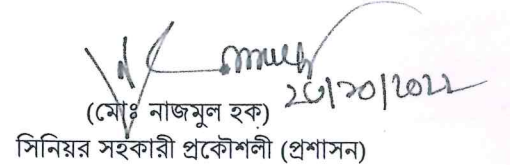 ২৫/১০/২০২২
(মোঃ নাজমুল হক)
সিনিয়র সহকারী প্রকৌশলী (প্রশাসন)